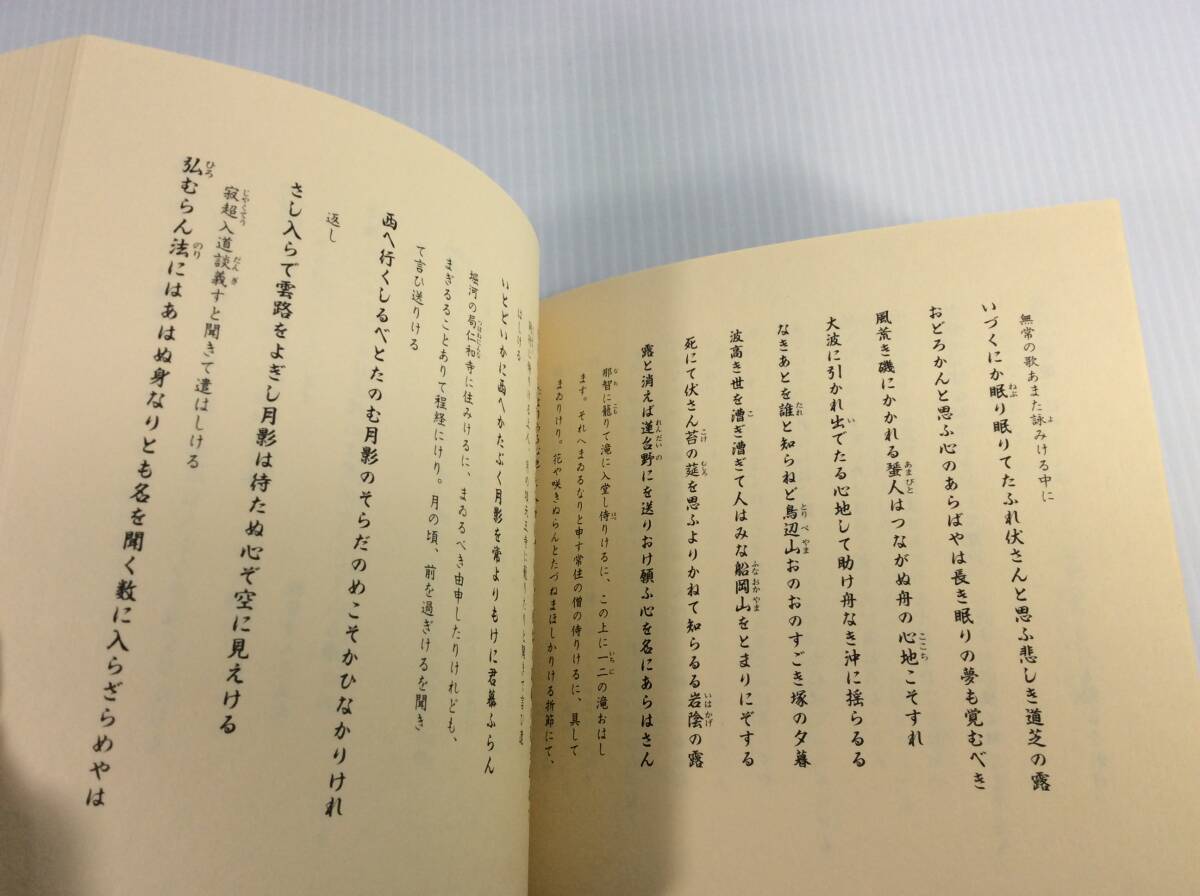 無常の歌あまた詠みける中に
いづくにか眠り眠りてたふれ伏さんと思ふ悲しき道芝の露
おどろかんと思ふ心のあらばやは長き眠りの夢も覚むべき
風荒き磯にかかれる蜑人はつながぬ舟の心地こそすれ
大波に引かれ出でたる心地して助け舟なき沖に揺らるる
なきあとを誰と知らねど鳥辺山おのおのすごき塚の夕暮
波高き世を漕ぎ漕ぎて人はみな船岡山をとまりにぞする
死にて伏さん苔の筵を思ふよりかねて知らるる岩陰の露
露と消えば蓮台野にを送りおけ願ふ心を名にあらはさん
那智に籠りて滝に入堂し侍りけるに、この上に一二の滝おはし
ます。それへまゐるなりと申す常住の僧の侍りけるに、具して
まゐりけり。花や咲きぬらんとたづねまほしかりける折節にて、
はしける
いとどいかに西へかたぶく月影を常よりもけに君慕ふらん
堀河の局仁和寺に住みけるに、まゐるべき由申したりけれども、
まぎるることありて程経にけり。月の頃、前を過ぎけるを聞き
て言ひ送りける
西へ行くしるべとたのむ月影のそらだのめこそかひなかりけれ
返し
さし入らで雲路をよぎし月影は待たぬ心ぞ空に見えける
寂超入道談義すと聞きて遣はしける
弘むらん法にはあはぬ身なりとも名を聞く数に入らざらめやは